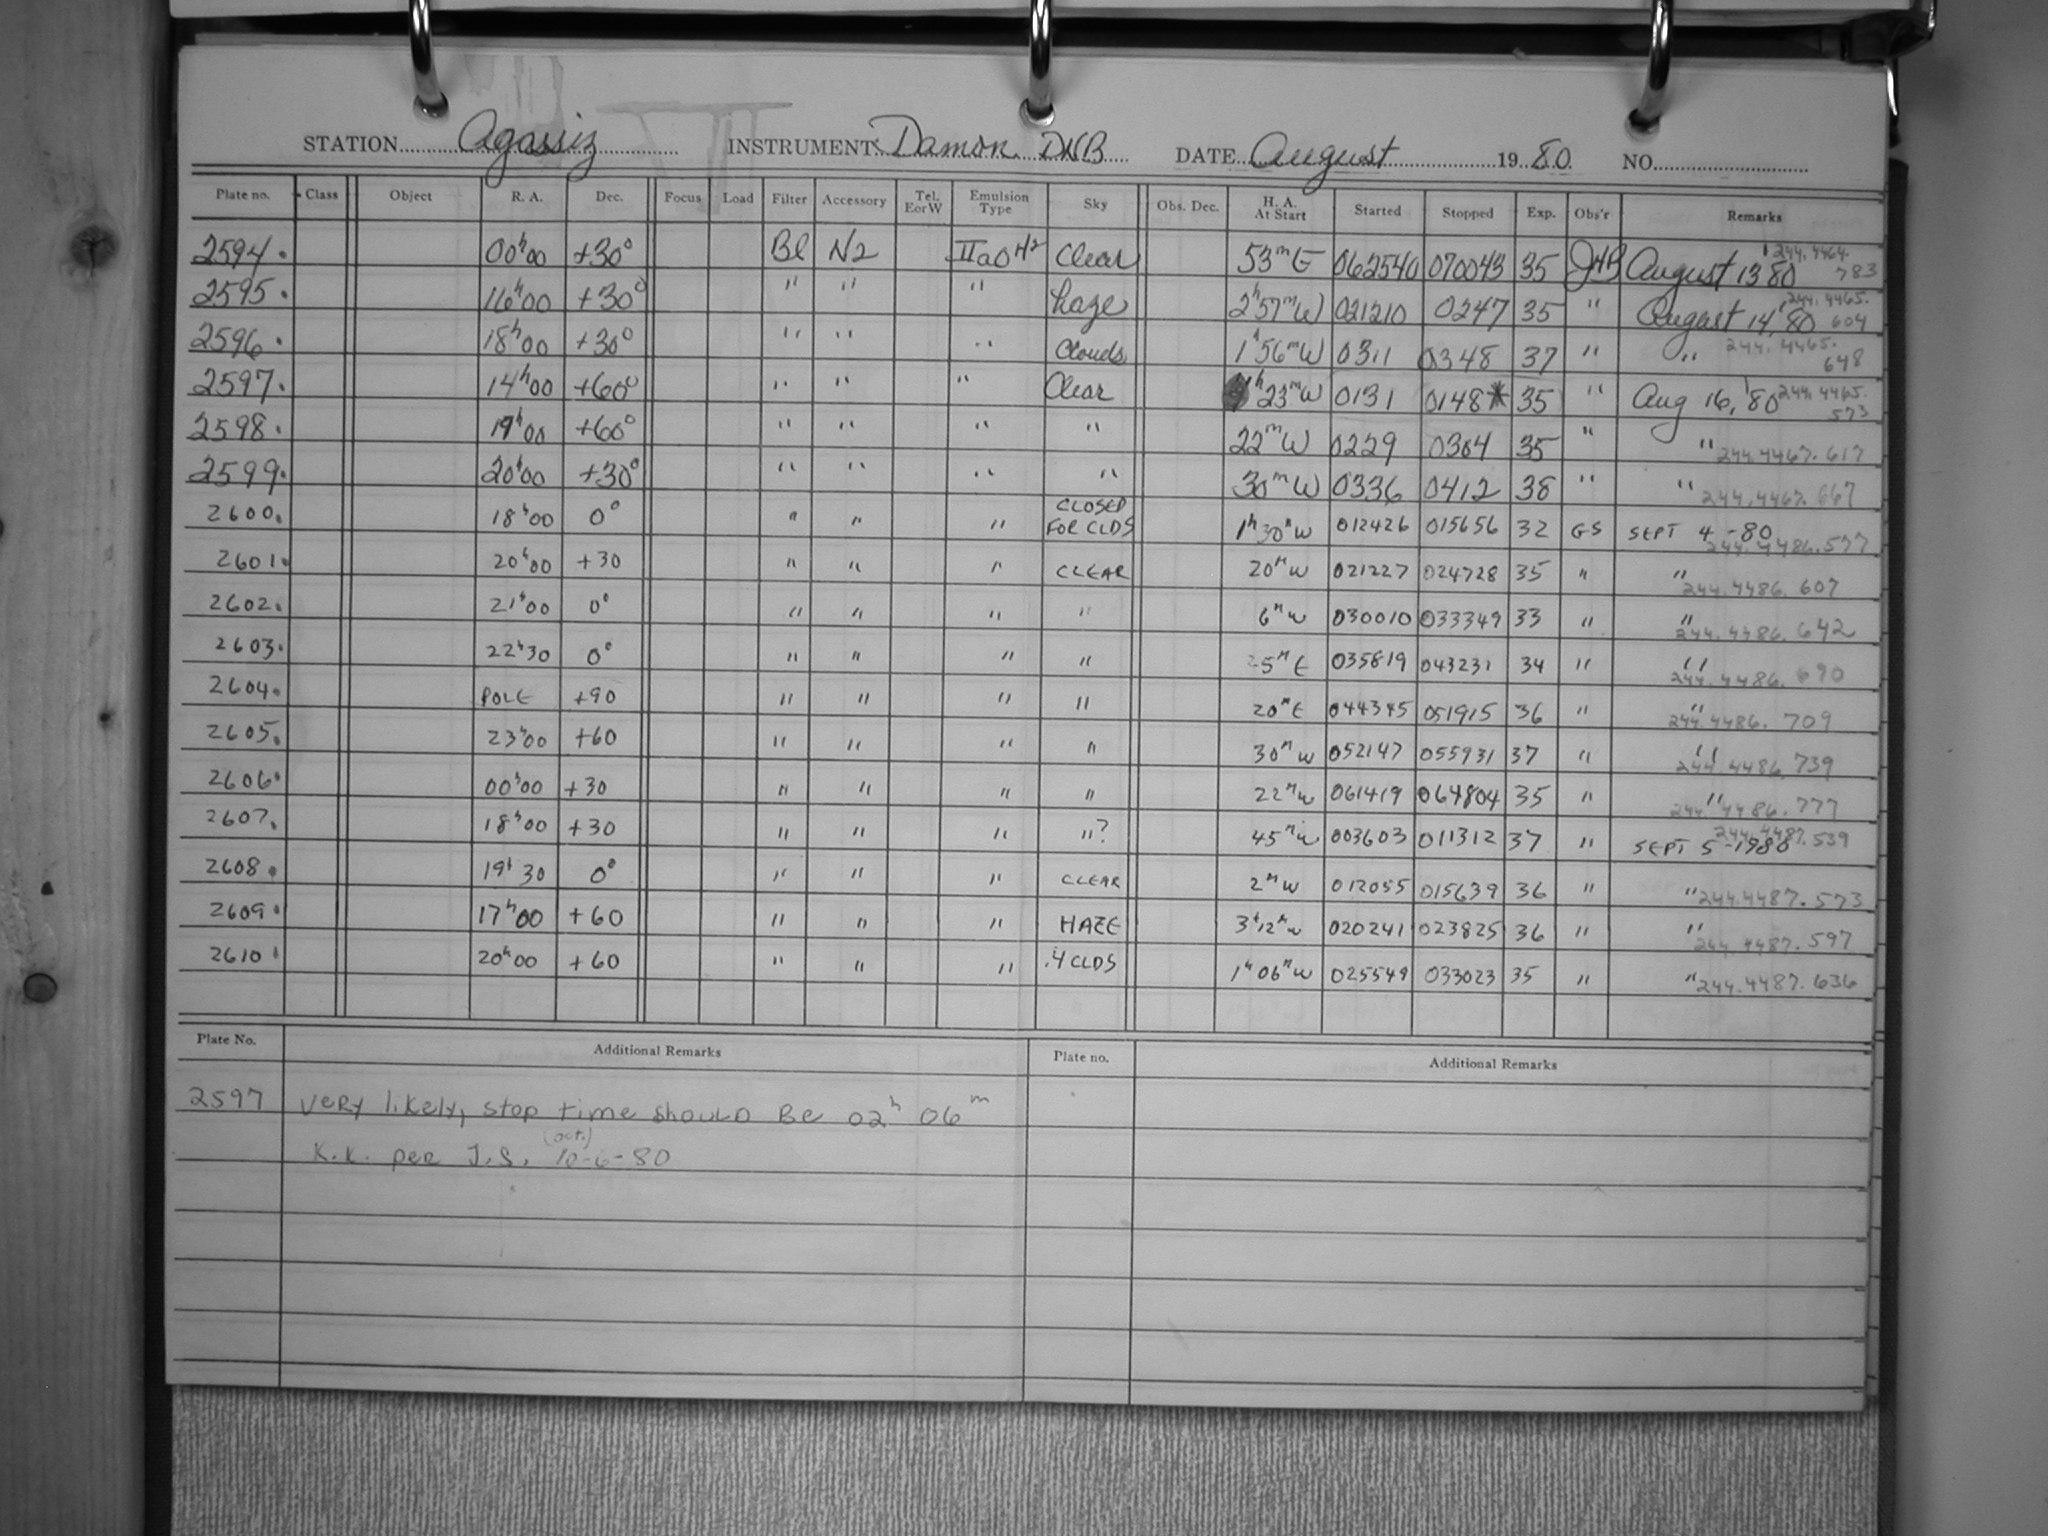 STATION Agassiz INSTRUMENT Damon DNB DATE August 19 80 NO.
Plate no. Class Object R. A. Dec. Focus Load Filter Accessory Tel. E or W Emulsion Type Sky Obs. Dec. H. A. At Start Started Stopped Exp. Obs'r Remarks
2594. 00h00 +30° Bl N2 IIaOH2 Clear 53mE 062540 070043 35 JHB August 13 80 244.4464.783
2595. 16h00 +30° " " " haze 2h57mW 021210 0247 35 " August 14, 80 244.4465.604
2596. 18h00 +30° " " " Clouds 1h56mW 0311 0348 37 " " 244.4465.648
2597. 14h00 +60° " " " Clear h23mW 0131 0148* 35 " Aug 16, 80 244.4465.573
2598. 19h00 +60° " " " " 22mW 0229 0304 35 " " 244.4467.617
2599. 20h00 +30° " " " " 30mW 0336 0412 38 " " 244.4467.667
2600. 18h00 0° " " " CLOSED FOR CLDS 1h30mW 012426 015656 32 GS SEPT 4 -80 244.4486.577
2601. 20h00 +30 " " " CLEAR 20mW 021227 024728 35 " " 244.4486.607
2602. 21h00 0° " " " " 6mW 030010 033349 33 " " 244.4486.642
2603. 22h30 0° " " " " 25mE 035819 043231 34 " " 244.4486.690
2604. POLE +90 " " " " 20mE 044345 051915 36 " " 244.4486.709
2605. 23h00 +60 " " " " 30mW 052147 055931 37 " " 244.4486.739
2606. 00h00 +30 " " " " 22mW 061419 064804 35 " " 244.4486.777
2607. 18h00 +30 " " " "? 45mW 003603 011312 37 " SEPT 5-1980 244.4487.539
2608. 19h30 0° " " " CLEAR 2mW 012055 015639 36 " " 244.4487.573
2609. 17h00 +60 " " " HAZE 3h12mW 020241 023825 36 " " 244.4487.597
2610. 20h00 +60 " " " .4 CLDS 1h06mW 025549 033023 35 " " 244.4487.636
Plate No. Additional Remarks Plate no. Additional Remarks
2597 Very likely, stop time should Be 02h 06m
(oct.)
K.K. per J.S. 10-6-80